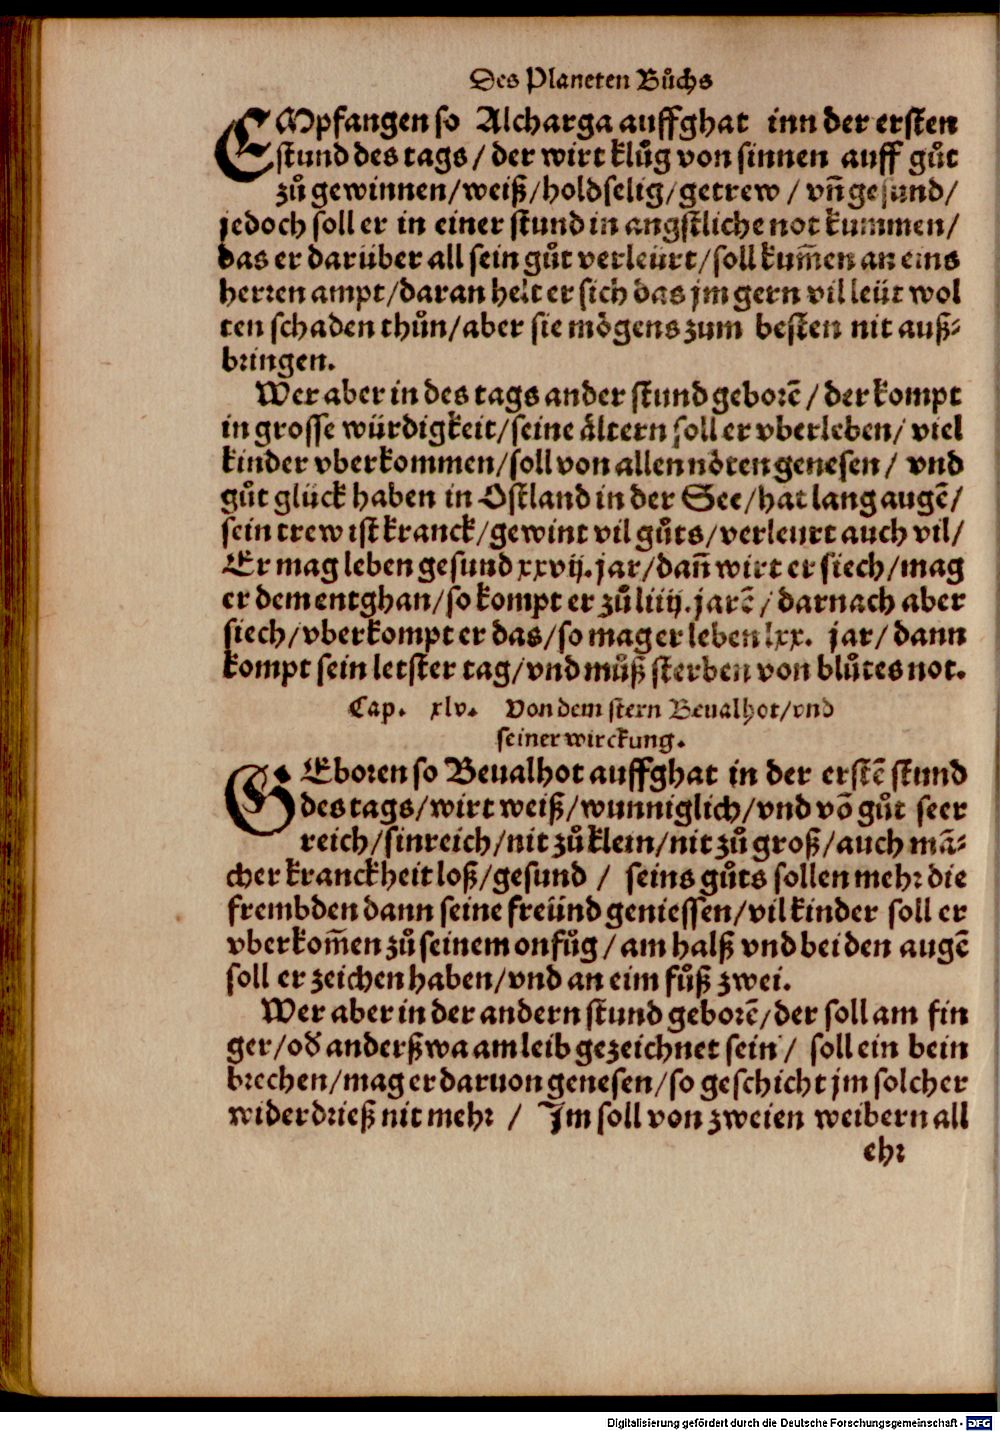 Des Planeten Bůchs
EMpfangen so Alcharga auffghat inn der ersten
stund des tags / der wirt klůg von sinnen auff gůt
zů gewinnen/weiß/holdselig/getrew / vñ gesund/
jedoch soll er in einer stund in angstliche not kummen/
das er darüber all sein gůt verleürt/soll kum̃en an eins
herren ampt/daran helt er sich das jm gern vil leüt wol
ten schaden thůn/aber sie mögens zum besten nit auß⸗
bringen.
Wer aber in des tags ander stund geborẽ / der kompt
in grosse würdigkeit/seine ältern soll er vberleben/ viel
kinder vberkommen/soll von allen nöten genesen / vnd
gůt glück haben in Ostland in der See/hat lang augẽ/
sein trew ist kranck/gewint vil gůts/verleurt auch vil/
Er mag leben gesund xxvij. jar/dañ wirt er siech/mag
er dem entghan/so kompt er zů liiij. jarẽ / darnach aber
siech/vberkompt er das/so mag er leben lxx. jar/ dann
kompt sein letster tag/vnd můß sterben von blůtes not.
Cap. xlv. Von dem stern Beualhot/vnd
seiner wirckung.
GEboren so Beualhot auffghat in der erstẽ stund
des tags/wirt weiß/wunniglich/vnd võ gůt seer
reich/sinreich/nit zů klein/nit zů groß/auch mã⸗
cher kranckheit loß/gesund / seins gůts sollen mehr die
frembden dann seine freünd geniessen/vil kinder soll er
vberkom̃en zů seinem onfůg / am halß vnd bei den augẽ
soll er zeichen haben/vnd an eim fůß zwei.
Wer aber in der andern stund geborẽ/der soll am fin
ger/oď anderßwa am leib gezeichnet sein / soll ein bein
brechen/mag er daruon genesen/so geschicht jm solcher
widerdrieß nit mehr / Im soll von zweien weibern all
ehr
Digitalisierung gefördert durch die Deutsche Forschungsgemeinschaft - DFG